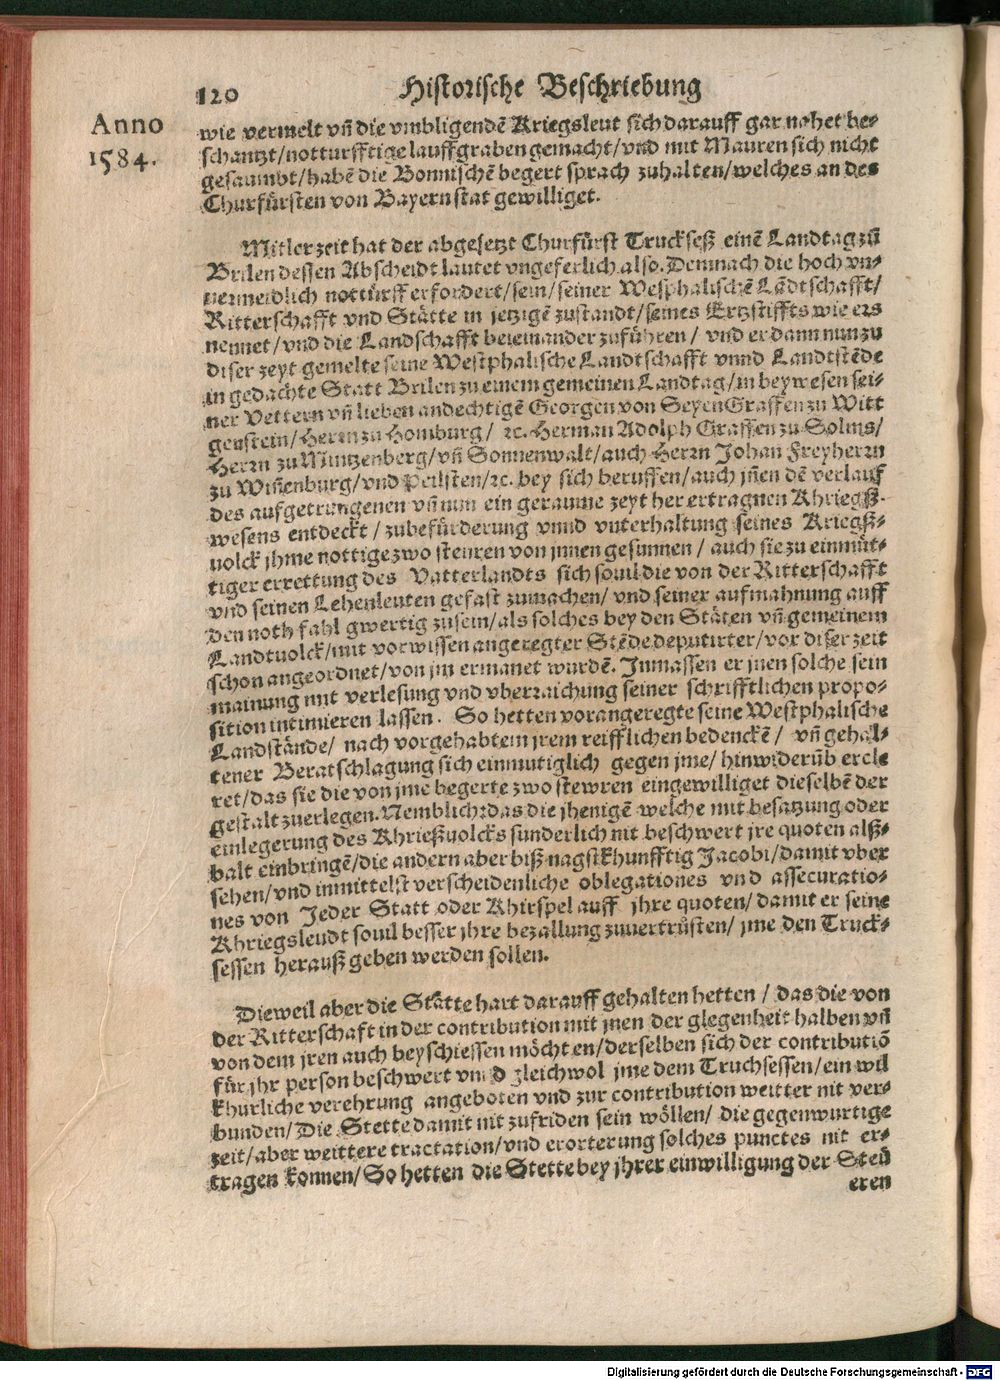 120 Historische Beschriebung
Anno
1584.
wie vermelt vñ die vmbligendẽ Kriegsleut sich darauff gar nahet be-
schantzt/notturfftige lauffgraben gemacht/vnd mit Mauren sich nicht
gesaumbt/habẽ die Bonnischẽ begert sprach zuhalten/welches an des
Churfürsten von Bayern stat gewilliget.
Mitler zeit hat der abgesetzt Churfürst Truckseß einẽ Landtag zů
Brilen dessen Abscheidt lautet vngeferlich also. Demnach die hoch vn-
uermeidlich nottürff erfordert/sein/seiner Wesphalischẽ Lẽdtschafft/
Ritterschafft vnd Stätte in jetzigẽ zustandt/seines Ertzstiffts wie ers
nennet/vnd die Landschafft beieinander zuführen/ vnd er dann nun zu
diser zeyt gemelte seine Westphalische Landtschafft vnnd Landtstẽde
in gedachte Statt Brilen zu einem gemeinen Landtag/in beywesen sei-
ner Vettern vñ lieben andechtigẽ Georgen von Seyen Graffen zu Witt
genstein/Herrn zu Homburg/ ꝛc. Herman Adolph Graffen zu Solms/
Herrn zu Mintzenberg/vñ Sonnenwalt/auch Herrn Johan Freyherrn
zu Wiñenburg/vnd Peilsten/ꝛc. bey sich beruffen/auch jñen dẽ verlauf
des aufgetrungenen vñ nun ein geraume zeyt her ertragnen Khriegß-
wesens entdeckt / zubefürderung vnnd vnterhaltung seines Kriegß-
uolck jhme nottige zwo steuren von jnnen gesunnen / auch sie zu einmüt-
tiger errettung des Vatterlandts sich souil die von der Ritterschafft
vnd seinen Lehenleuten gefast zumachen/ vnd seiner aufmahnung auff
den noth fahl gwertig zusein/als solches bey den Stäten vñ gemeinem
Landtuolck/mit vorwissen angeregter Stẽde deputirter/vor diser zeit
schon angeordnet/von jm ermanet wurdẽ. Inmassen er jnen solche sein
mainung mit verlesung vnd vberraichung seiner schrifftlichen propo-
sition intimieren lassen. So hetten vorangeregte seine Westphalische
Landstände/ nach vorgehabtem jrem reifflichen bedenckẽ/ vñ gehal-
tener Beratschlagung sich einmutiglich gegen jme/ hinwiderũb ercle
ret/das sie die von jme begerte zwo stewren eingewilliget dieselbẽ der
gestalt zuerlegen. Nemblich: das die jhenigẽ welche mit besatzung oder
einlegerung des Khrießuolcks sunderlich nit beschwert jre quoten alß-
balt einbringẽ/die andern aber biß nagstkhunfftig Jacobi/damit vber
sehen/vnd inmittelst verscheidenliche oblegationes vnd assecuratio-
nes von Jeder Statt oder Khirspel auff jhre quoten/ damit er seine
Khriegsleudt souil besser jhre bezallung zuuertrüsten/ jme den Truck-
sessen herauß geben werden sollen.
Dieweil aber die Stätte hart darauff gehalten hetten / das die von
der Ritterschaft in der contribution mit jnen der glegenheit halben vñ
von dem jren auch beyschiessen möchten/derselben sich der contributiõ
für jhr person beschwert vnnd gleichwol jme dem Truchsessen/ein wil
khürliche verehrung angeboten vnd zur contribution weitter nit ver-
bunden/Die Stette damit nit zufriden sein wöllen/ die gegenwurtige
zeit/aber weittere tractation/vnd erorterung solches punctes nit er-
tragen konnen/So hetten die Stette bey jhrer einwilligung der Steů
eren
Digitalisierung gefördert durch die Deutsche Forschungsgemeinschaft - DFG